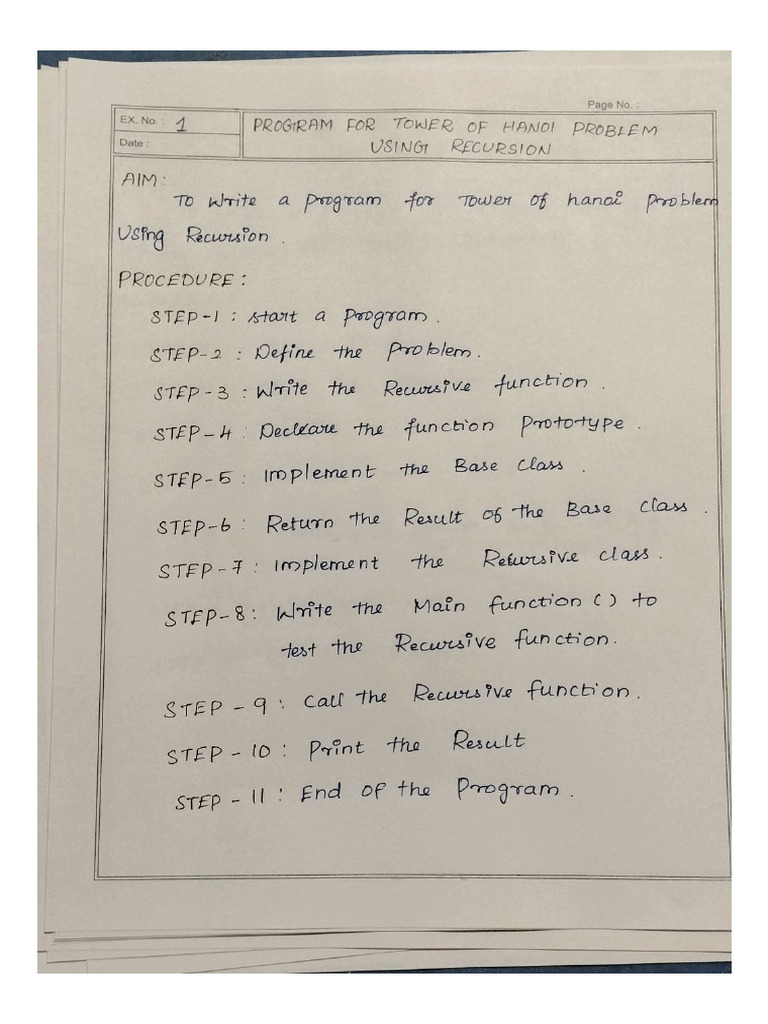 Page No. :
EX. No. : 1
PROGRAM FOR TOWER OF HANOI PROBLEM
Date :
USING RECURSION
AIM:
To Write a program for Tower of hanoi Problem
Using Recursion.
PROCEDURE:
STEP-1: start a program.
STEP-2: Define the Problem.
STEP-3: Write the Recursive function.
STEP-4: Declare the function Prototype.
STEP-5: Implement the Base Class.
STEP-6: Return the Result of the Base class.
STEP-7: Implement the Recursive class.
STEP-8: Write the Main function() to
test the Recursive function.
STEP-9: Call the Recursive function.
STEP-10: Print the Result
STEP-11: End of the Program.